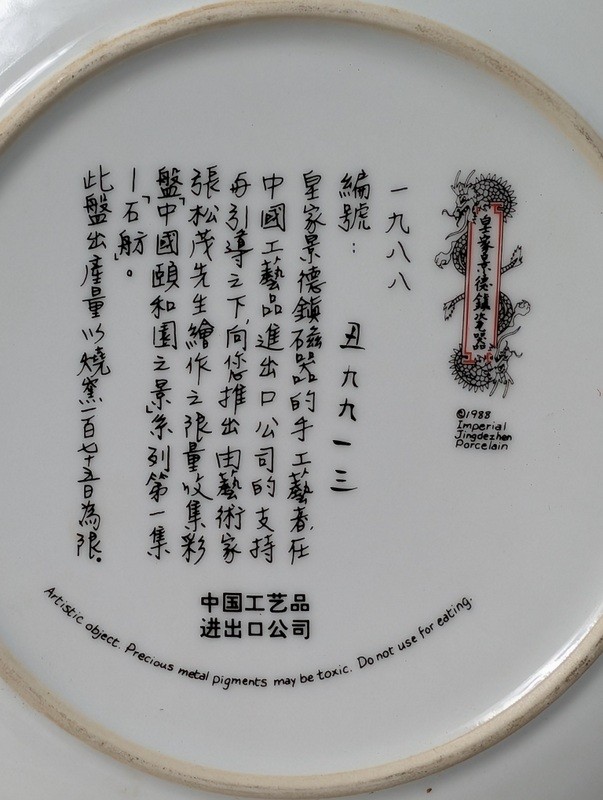 皇家景德鎮瓷器
©1988
Imperial
Jingdezhen
Porcelain
一九八八
編號： 丑九九一三
皇家景德鎮磁器的手工藝者，在
中國工藝品進出口公司的支持
与引導之下，向您推出由藝術家
張松茂先生繪作之限量收集彩
盤「中國頤和園之景」系列第一集
—「石舫」。
此盤出產量以燒窯一百七十五日為限。
中国工艺品
进出口公司
Artistic object. Precious metal pigments may be toxic. Do not use for eating.